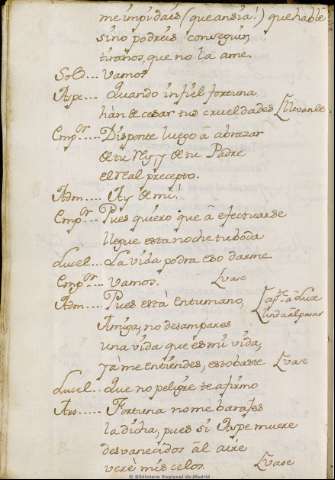 me impidáis (que ansia!) que hable
sino podreis conseguir,
tiranos, que no la ame.
Sold.... Vamos
Aspe... Quando infiel fortuna
han de cesar tus crueldades Llevanle
Emp.or... Disponte luego â abrazar
de tu Rey, y de tu Padre
el real precepto.
Adm.... Ay de mi!
Emp.or Pues quiero que â efectuarse
llegue esta noche tu boda
Lucel... La vida podra eso darme
Emp.or... Vamos. Vase
Adm.... Pues está en tu mano,
Amiga, no desampares
una vida que es mi vida,
ya me entiendes, esto baste Vase
Lucel... Que no peligre te afirmo
Ars..... Fortuna no me barajes
la dicha, pues si Aspe muere
desvanecidos al aire
veré mis celos. Vase
© Biblioteca Regional de Madrid